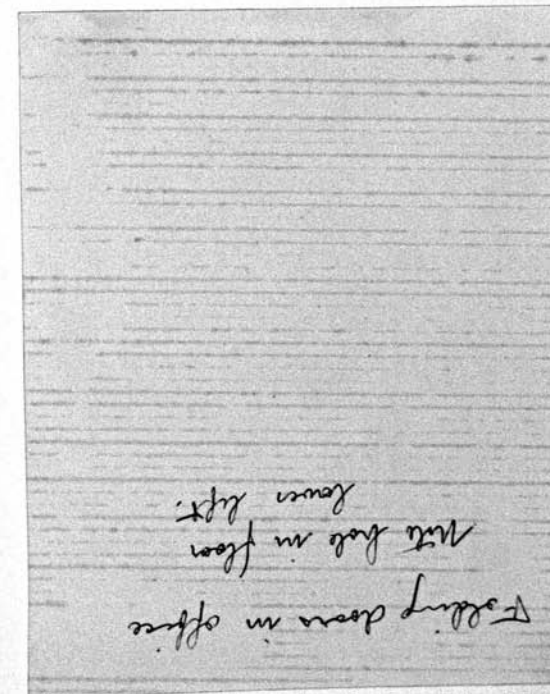 Folding doors in office
Note hole in floor
lower left.